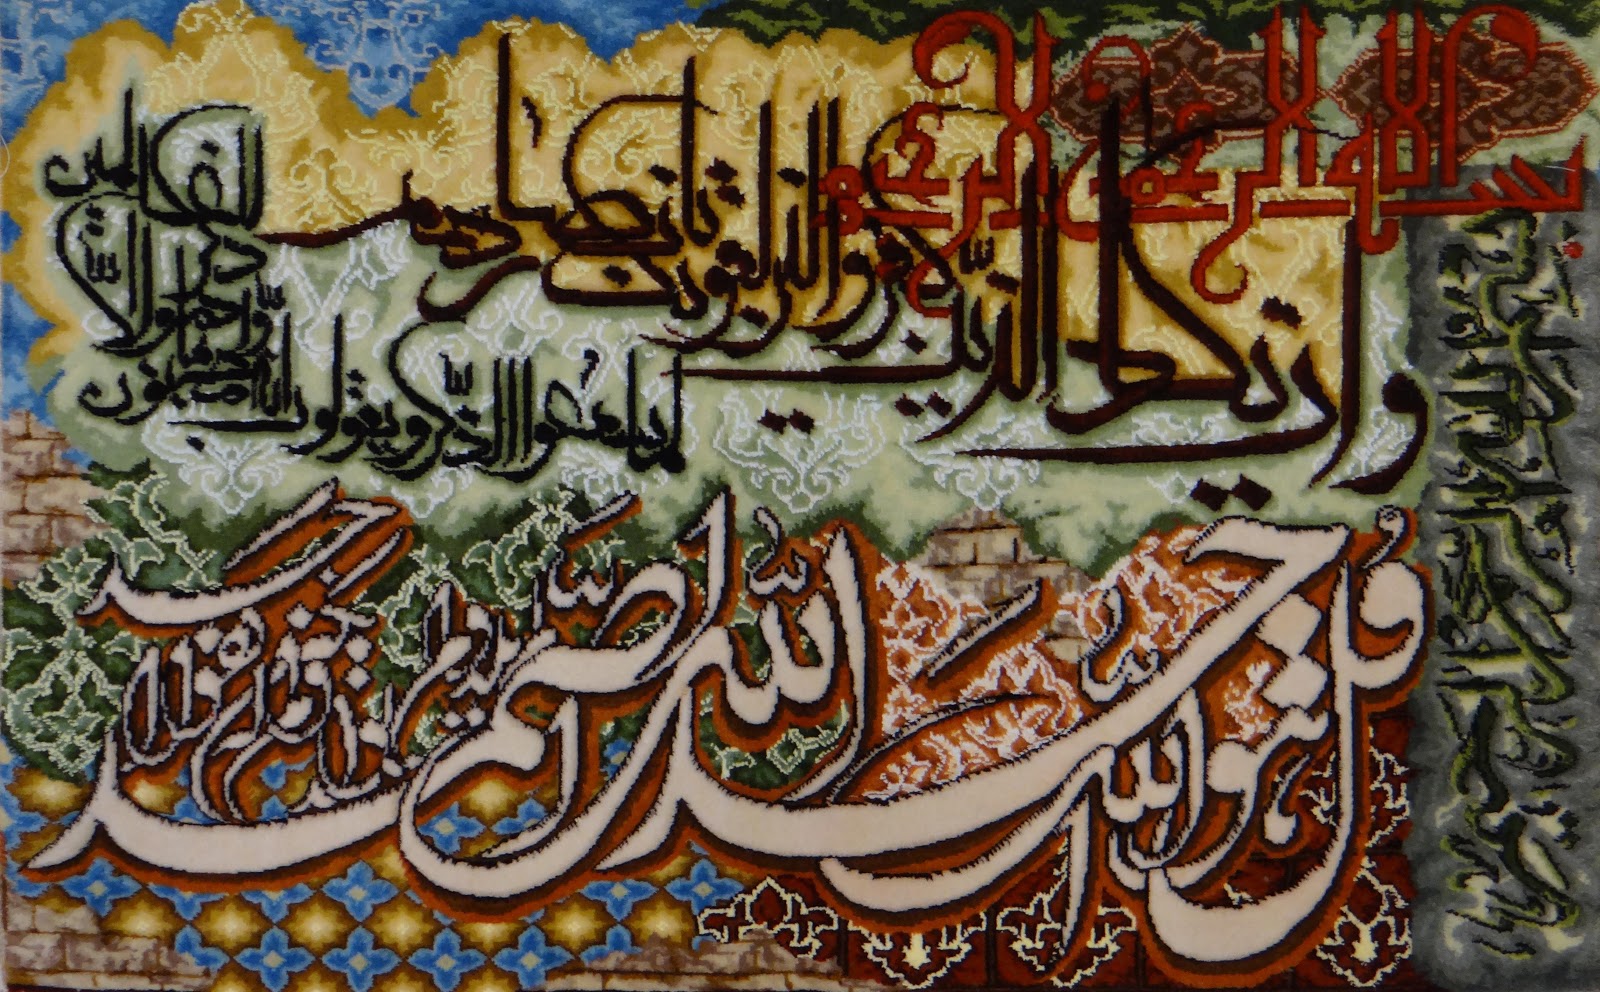 بسم الله الرحمن الرحيم
وان يكاد الذين كفروا ليزلقونك بابصارهم
لما سمعوا الذكر ويقولون انه لمجنون
وما هو الا ذكر للعالمين
قل هو الله احد الله الصمد لم يلد ولم يولد ولم يكن له كفوا احد